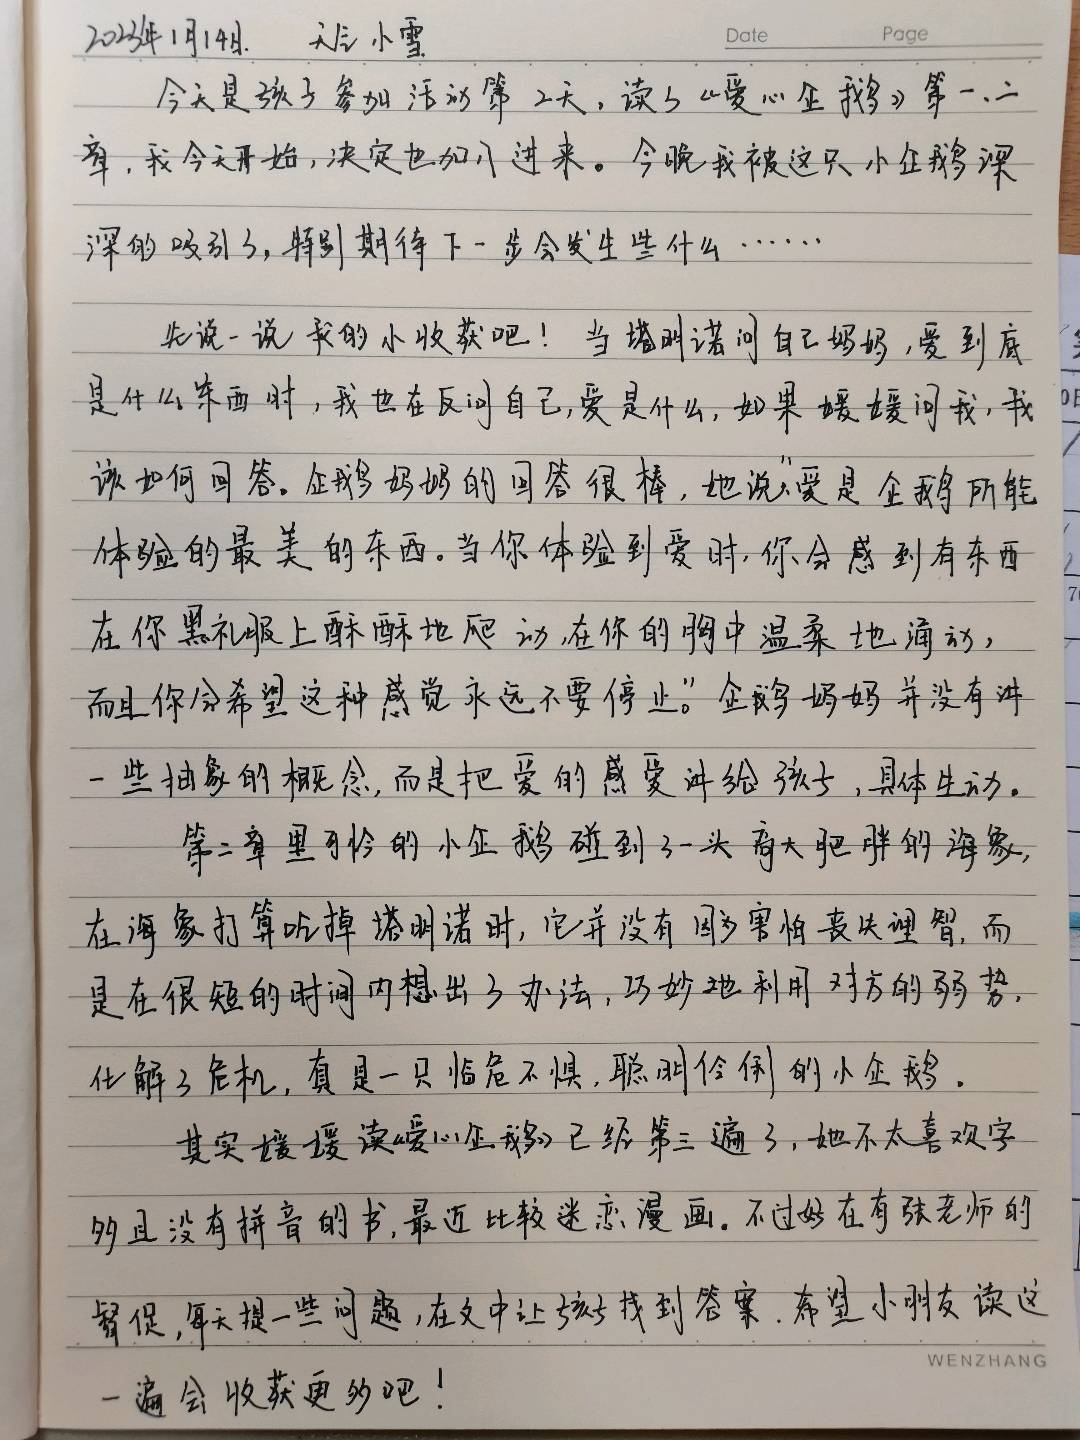 2023年1月14日. 天气小雪
Date Page
今天是孩子参加活动第2天,读了《爱心企鹅》第一、二
章,我今天开始,决定也加入进来。今晚我被这只小企鹅深
深的吸引了,特别期待下一步会发生些什么……
先说一说我的小收获吧!当塔明诺问自己妈妈,爱到底
是什么东西时,我也在反问自己,爱是什么,如果媛媛问我,我
该如何回答。企鹅妈妈的回答很棒,她说:"爱是企鹅所能
体验的最美的东西。当你体验到爱时,你会感到有东西
在你黑礼服上酥酥地爬动,在你的胸中温柔地涌动,
而且你会希望这种感觉永远不要停止。"企鹅妈妈并没有讲
一些抽象的概念,而是把爱的感受讲给孩子,具体生动。
第二章里可怜的小企鹅碰到了一头高大肥胖的海象,
在海象打算吃掉塔明诺时,它并没有因为害怕丧失理智,而
是在很短的时间内想出了办法,巧妙地利用对方的弱势,
化解了危机,真是一只临危不惧,聪明伶俐的小企鹅。
其实媛媛读《爱心企鹅》已经第三遍了,她不太喜欢字
多且没有拼音的书,最近比较迷恋漫画。不过好在有张老师的
督促,每天提一些问题,在文中让孩子找到答案.希望小朋友读这
WENZHANG
一遍会收获更多吧!